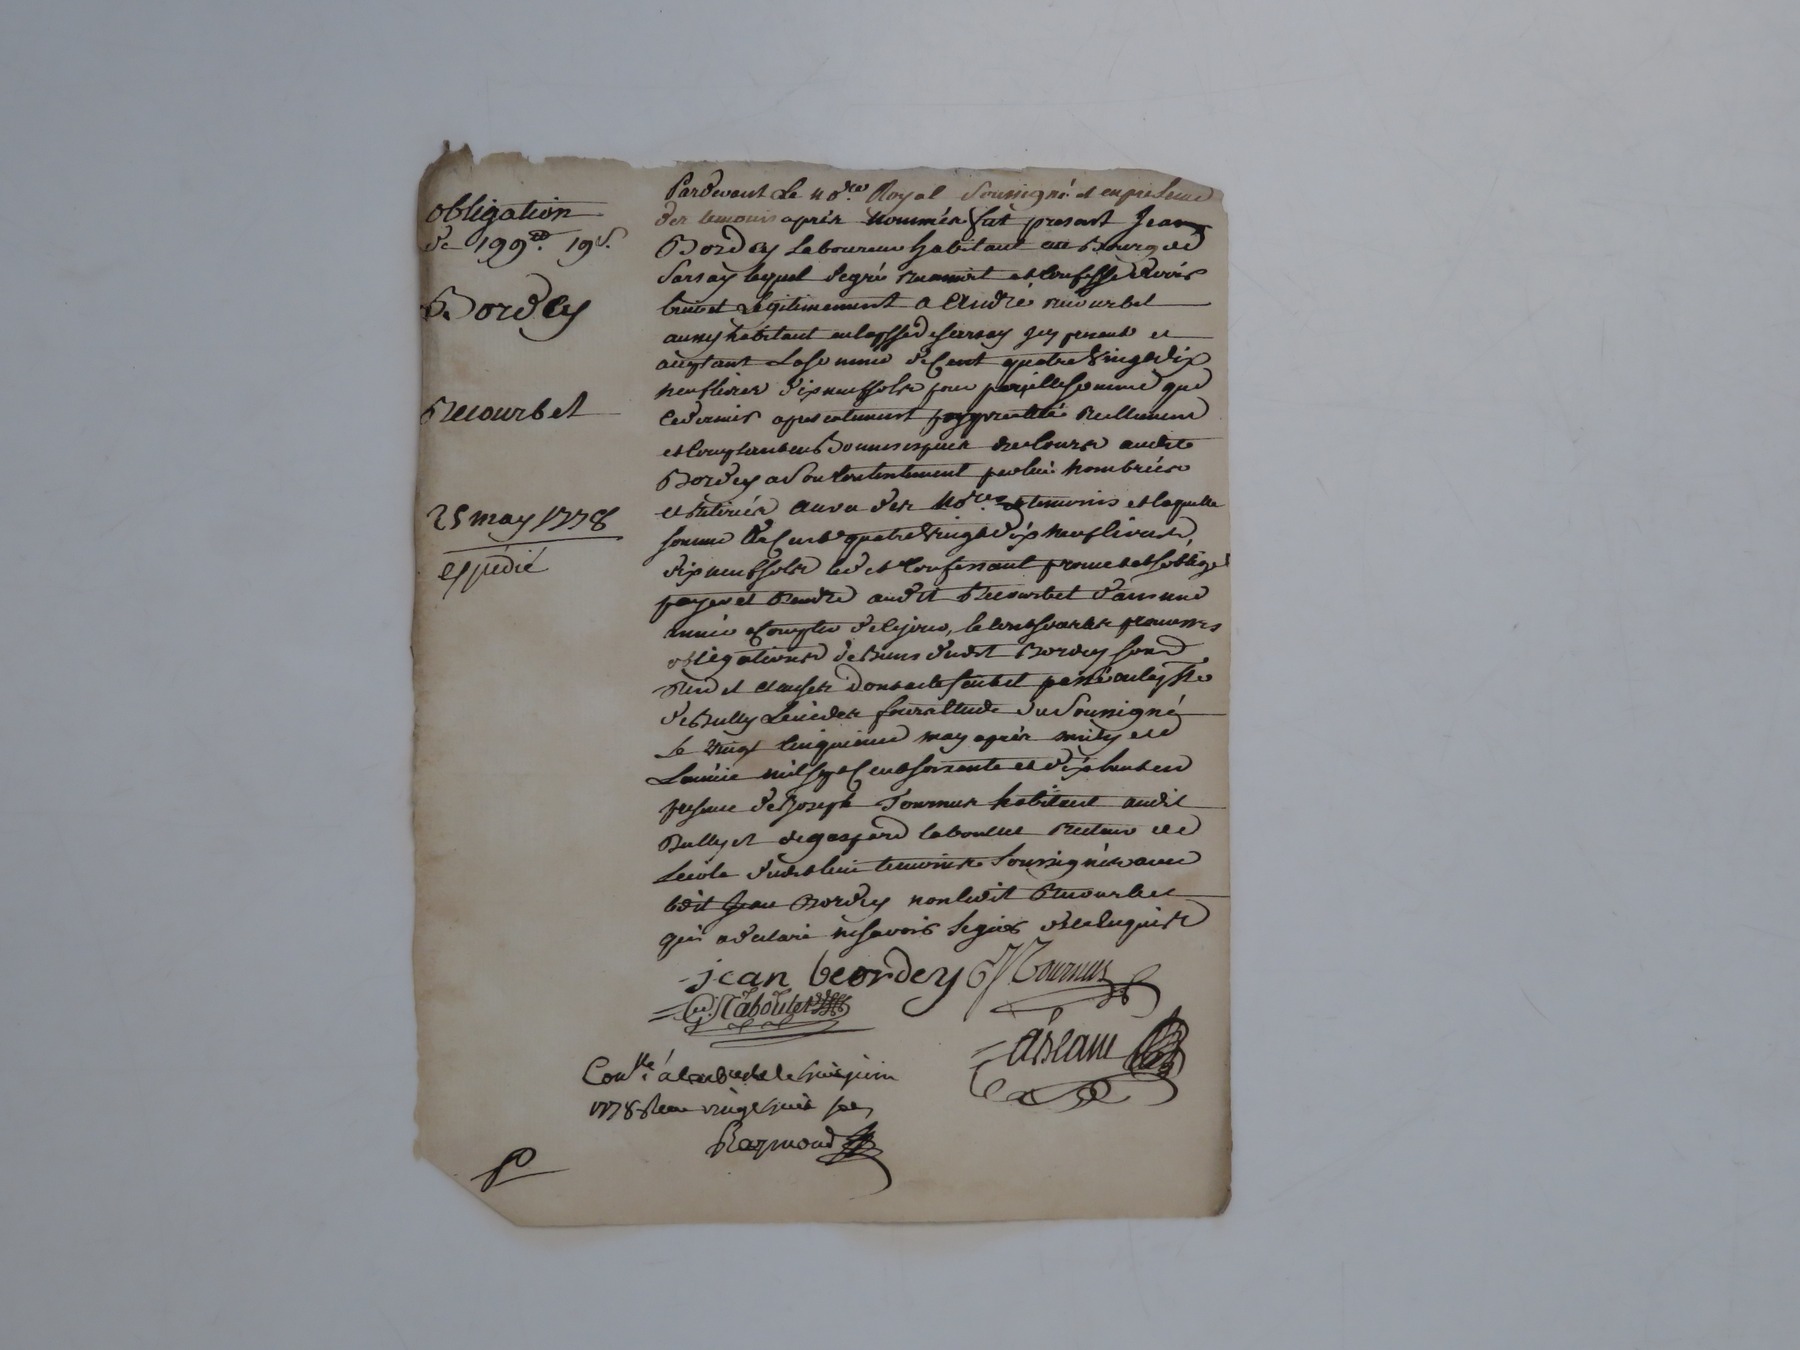 obligation
de 199 ℔. 19 s.
Bordey
Recourbet
25 may 1778
expédié
Pardevant Le no.re Royal Soussigné et en presence
des temoins après nommés fut present Jean
Bordey Laboureur habitant au Bourg de
Sarsay lequel de gré reconnoit et confesse devoir
bien et légitimement a André recourbet
aussy habitant
acceptant La somme de Cent quatre vingt dix
neuf livres dix neuf sols pour pareille somme que
ce dernier a presentement reellement
et comptant en Bonnes especes de cours audit
Bordey a Son Contentement par lui nombrées
et retirées au vu des no.res et temoins et laquelle
somme de Cent quatre vingt dix neuf livres
dix neuf sols led. et Confessant promet et s'oblige
payer et Rendre audit Recourbet dans une
année a Compter de ce jour, le tout sous les promesses
obligations de Biens dudit Bordey
et clauses dont acte fait et passé
de Bully Leüe des soussigné
Le vingt cinquieme may après midy de
L'année mil sept Cent soixante et dix huit en
presence de Joseph Tournus habitant audit
Bully et de gaspard laboulet Recteur de
Lecole dudit lieu temoins Soussignés avec
ledit Jean Bordey non ledit Recourbet
qui a declaré ne savoir signer de ce enquis
jean beordey J Tournus
G. Laboulet
Con.lle à le huit juin
1778 Reçu vingt huit sols
Raymond